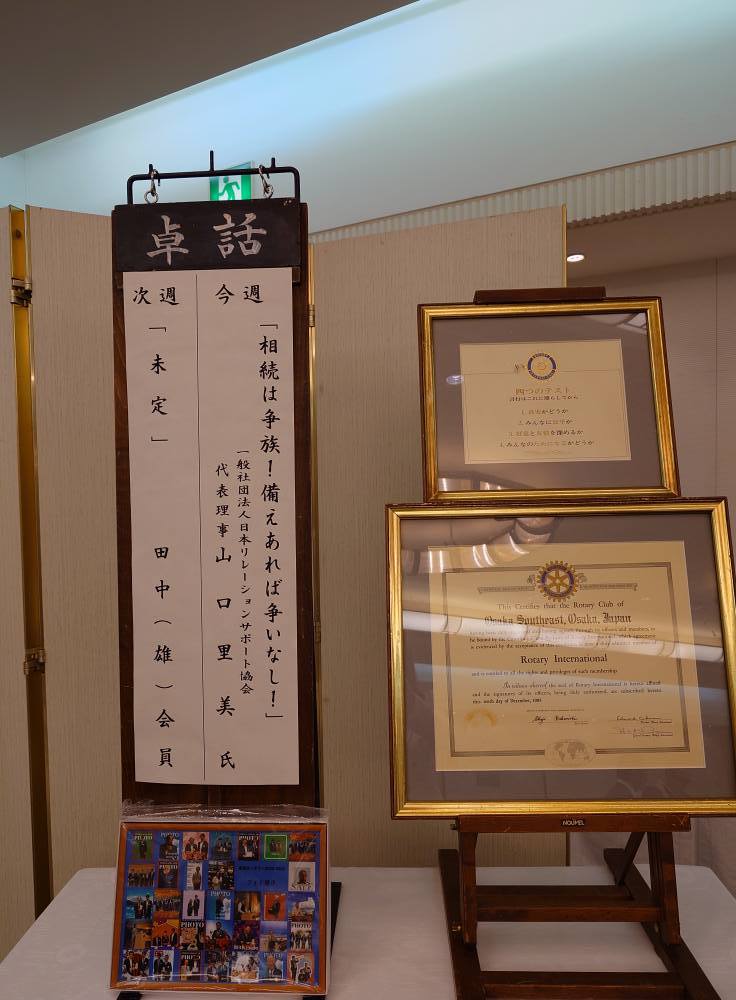 卓話
今週
「相続は争族！備えあれば争いなし！」
一般社団法人日本リレーションサポート協会
代表理事 山口里美氏
次週
「未定」
田中（雄）会員
四つのテスト
言行はこれに照らしてから
1. 真実かどうか
2. みんなに公平か
3. 好意と友情を深めるか
4. みんなのためになるかどうか
This Certifies that the Rotary Club of
Osaka Southeast, Osaka, Japan
having been duly
is evidenced by the acceptance of this
Rotary International
and is entitled to all the rights and privileges of such membership.
In witness whereof the seal of Rotary International is hereto affixed
and the signatures of its officers, being duly authorized, are subscribed hereto
this tenth day of December,
NOUPEL
PHOTO
PHOTO
PHOTO
PHOTO
PHOTO